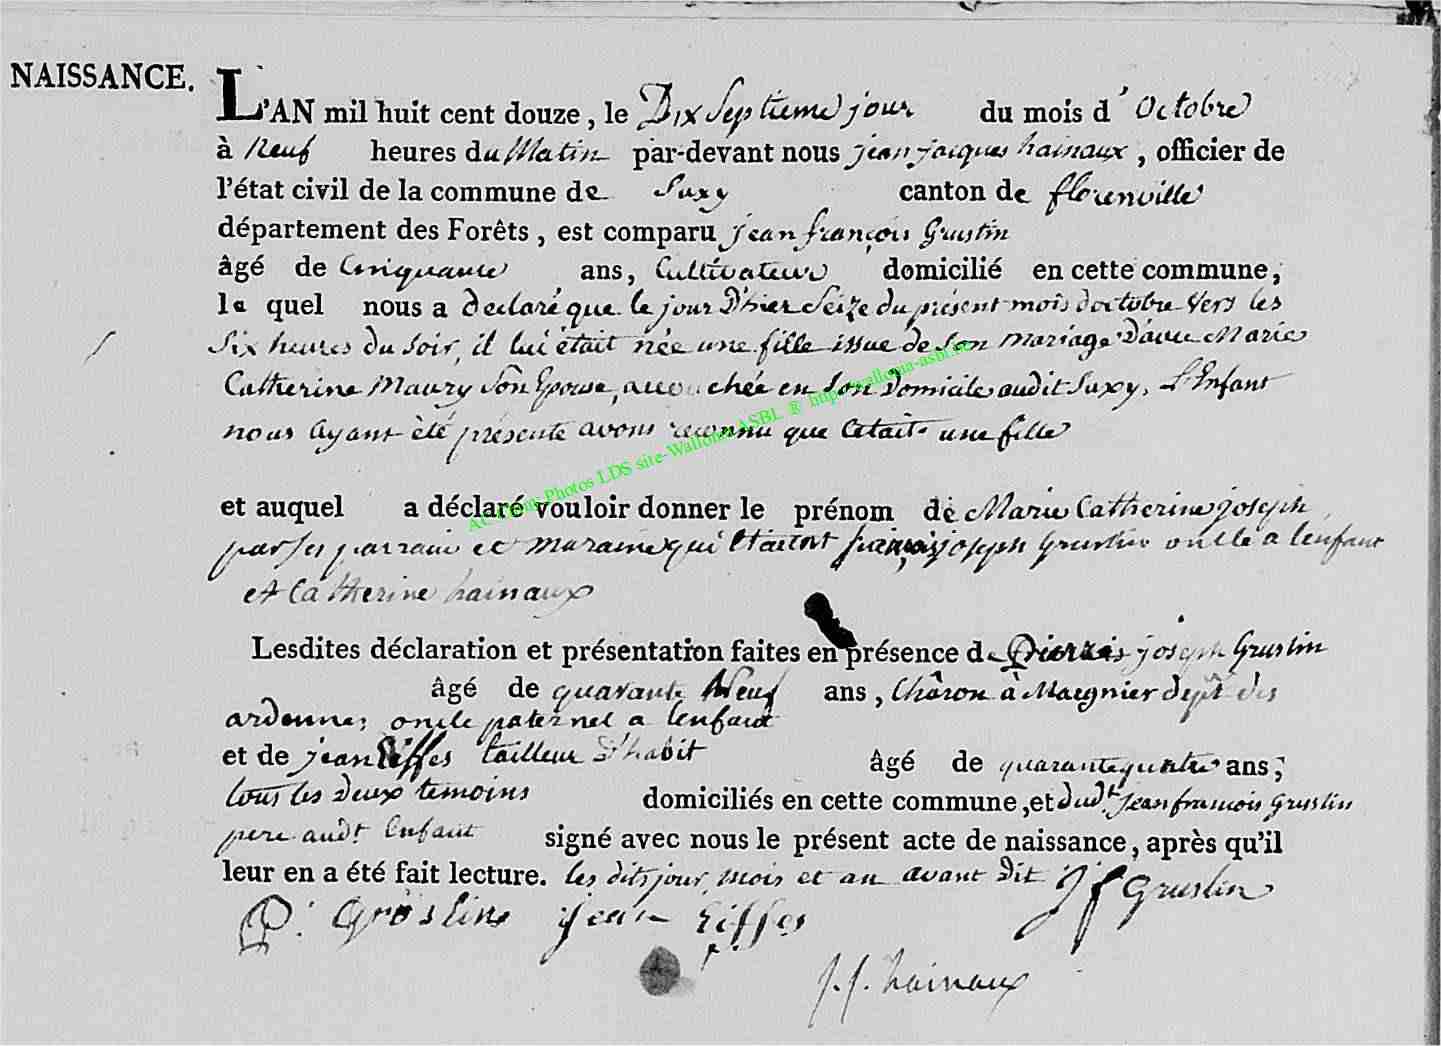 NAISSANCE.
L'AN mil huit cent douze, le Dix Septieme jour du mois d' Octobre
à Neuf heures du Matin par-devant nous jean jacques hainaux, officier de
l'état civil de la commune de Suxy canton de florenville
département des Forêts, est comparu jean françois Gruslin
âgé de Cinquante ans, Cultivateur domicilié en cette commune,
le quel nous a declaré que le jour D'hier Seize du présent mois doctobre vers les
Six heures du Soir, il lui était née une fille issue de Son mariage D'avec Marie
Catherine Maury Son Epouse, accouchée en Son Domicile audit Suxy, L'Enfant
nous ayant été présenté avons reconnu que Cétait une fille
AC Photos LDS site-Wallonia ASBL @ http://wallonia-asbl.be
et auquel a déclaré vouloir donner le prénom de Marie Catherine joseph
par Ses parrain et maraine qui Etaient françois joseph Gruslin oncle a lenfant
et Catherine hainaux
Lesdites déclaration et présentation faites en présence de Pierre joseph Gruslin
âgé de quarante Neuf ans, Châron à Margnier dept des
ardennes oncle paternel a lenfant
et de jean Eiffes tailleur D'habit âgé de quarante quatre ans;
tous les Deux temoins domiciliés en cette commune, et dudt jean francois Gruslin
pere audt Enfant signé avec nous le présent acte de naissance, après qu'il
leur en a été fait lecture. les dits jour, mois et an avant Dit J f Gruslin
P. Gröslin jean Eiffes
j. j. hainaux